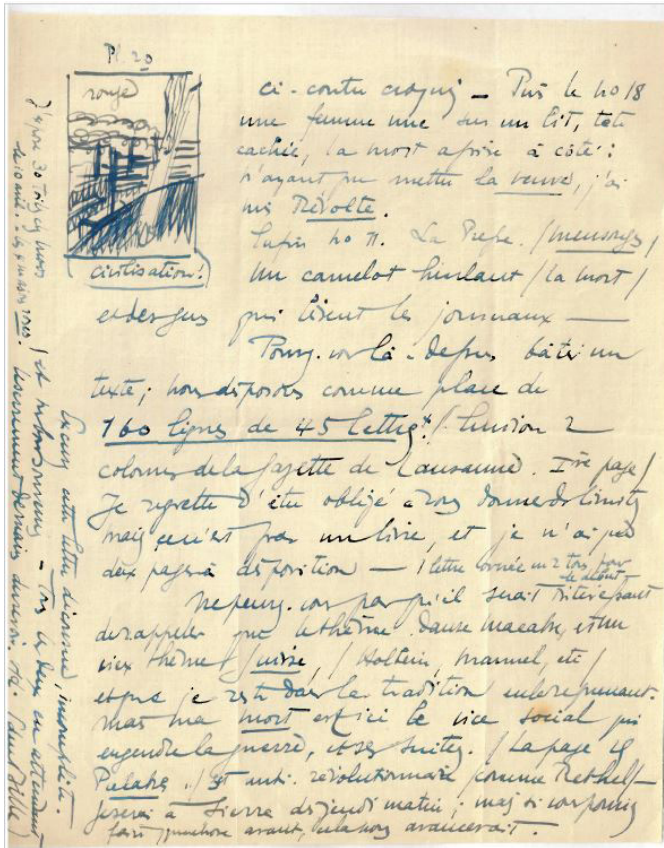 Pl. 20
rouge
civilisation!
ci-contre croquis — Puis le no 18
une femme nue sur un lit, tête
cachée, la mort assise à côté:
n'ayant pu mettre la veuve, j'ai
mis Révolte.
no 11. La Presse. / mensonges /
Un camelot hurlant / la mort /
et des gens qui lisent les journaux —
Pouvez-vous là-dessus bâtir un
texte; nous disposons comme place de
160 lignes de 45 lettres! / 2
colonnes de la gazette de Lausanne. 1ère page /
Je regrette d'être obligé à vous donner des limites
mais ce n'est pas un livre, et je n'ai que
deux pages à disposition — 1 lettre ornée en 2 tons, pour
le début
Ne pensez-vous pas qu'il serait intéressant
de rappeler que le thème danse macabre, est un
vieux thème suisse, / Holbein, Manuel, etc /
et que je reste dans la tradition en le reprenant.
Mais ma mort est ici le vice social qui
engendre la guerre, et ses suites. / La page 18
est anti-révolutionnaire comme Rethel / —
Je serai à Sierre dès jeudi matin; mais si vous pouviez
faire quelque chose avant, cela nous avancerait.
Excusez cette lettre décousue, incomplète.
et — Tous les deux en attendant